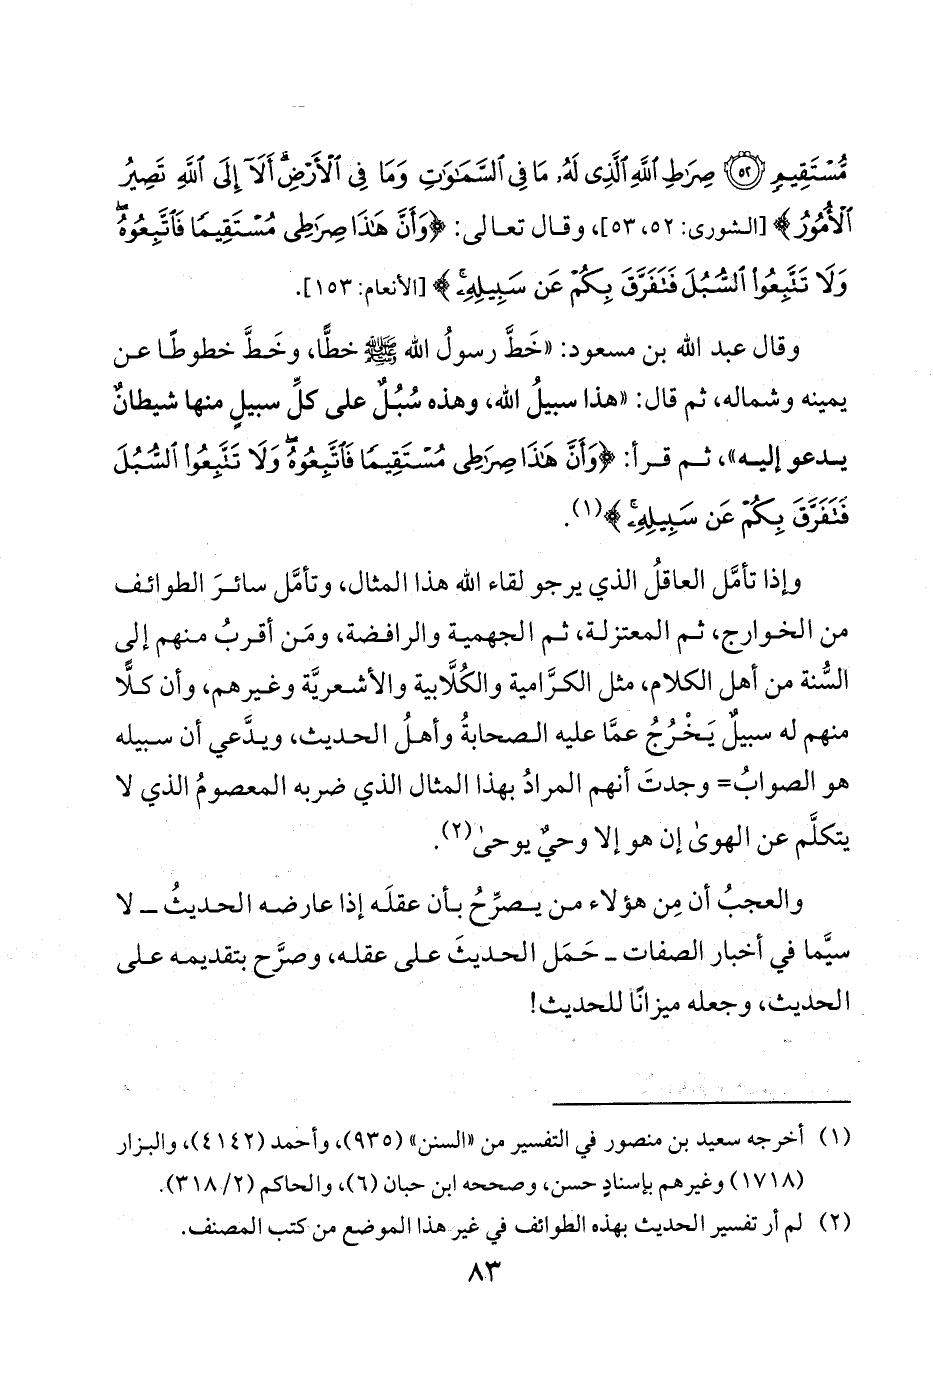 مُّسْتَقِيمٍ ۝٥٢ صِرَٰطِ ٱللَّهِ ٱلَّذِى لَهُۥ مَا فِى ٱلسَّمَٰوَٰتِ وَمَا فِى ٱلْأَرْضِۗ أَلَآ إِلَى ٱللَّهِ تَصِيرُ
ٱلْأُمُورُ﴾ [الشورى: ٥٢، ٥٣]، وقال تعالى: ﴿وَأَنَّ هَٰذَا صِرَٰطِى مُسْتَقِيمًا فَٱتَّبِعُوهُۖ
وَلَا تَتَّبِعُوا۟ ٱلسُّبُلَ فَتَفَرَّقَ بِكُمْ عَن سَبِيلِهِۦ﴾ [الأنعام: ١٥٣].
وقال عبد الله بن مسعود: «خَطَّ رسولُ الله ﷺ خطًّا، وخَطَّ خطوطًا عن
يمينه وشماله، ثم قال: «هذا سبيلُ الله، وهذه سُبُلٌ على كلِّ سبيلٍ منها شيطانٌ
يدعو إليه»، ثم قرأ: ﴿وَأَنَّ هَٰذَا صِرَٰطِى مُسْتَقِيمًا فَٱتَّبِعُوهُۖ وَلَا تَتَّبِعُوا۟ ٱلسُّبُلَ
فَتَفَرَّقَ بِكُمْ عَن سَبِيلِهِۦ﴾(١).
وإذا تأمَّل العاقلُ الذي يرجو لقاء الله هذا المثال، وتأمَّل سائرَ الطوائف
من الخوارج، ثم المعتزلة، ثم الجهمية والرافضة، ومَن أقربُ منهم إلى
السُّنة من أهل الكلام، مثل الكرَّامية والكُلَّابية والأشعريَّة وغيرهم، وأن كلًّا
منهم له سبيلٌ يَخْرُجُ عمَّا عليه الصحابةُ وأهلُ الحديث، ويدَّعي أن سبيله
هو الصوابُ= وجدتَ أنهم المرادُ بهذا المثال الذي ضربه المعصومُ الذي لا
يتكلَّم عن الهوىٰ إن هو إلا وحيٌ يوحىٰ(٢).
والعجبُ أن مِن هؤلاء من يصرِّحُ بأن عقلَه إذا عارضه الحديثُ ــ لا
سيَّما في أخبار الصفات ــ حَمَل الحديثَ على عقله، وصرَّح بتقديمه على
الحديث، وجعله ميزانًا للحديث!
(١) أخرجه سعيد بن منصور في التفسير من «السنن» (٩٣٥)، وأحمد (٤١٤٢)، والبزار
(١٧١٨) وغيرهم بإسنادٍ حسن، وصححه ابن حبان (٦)، والحاكم (٢/ ٣١٨).
(٢) لم أر تفسير الحديث بهذه الطوائف في غير هذا الموضع من كتب المصنف.
٨٣